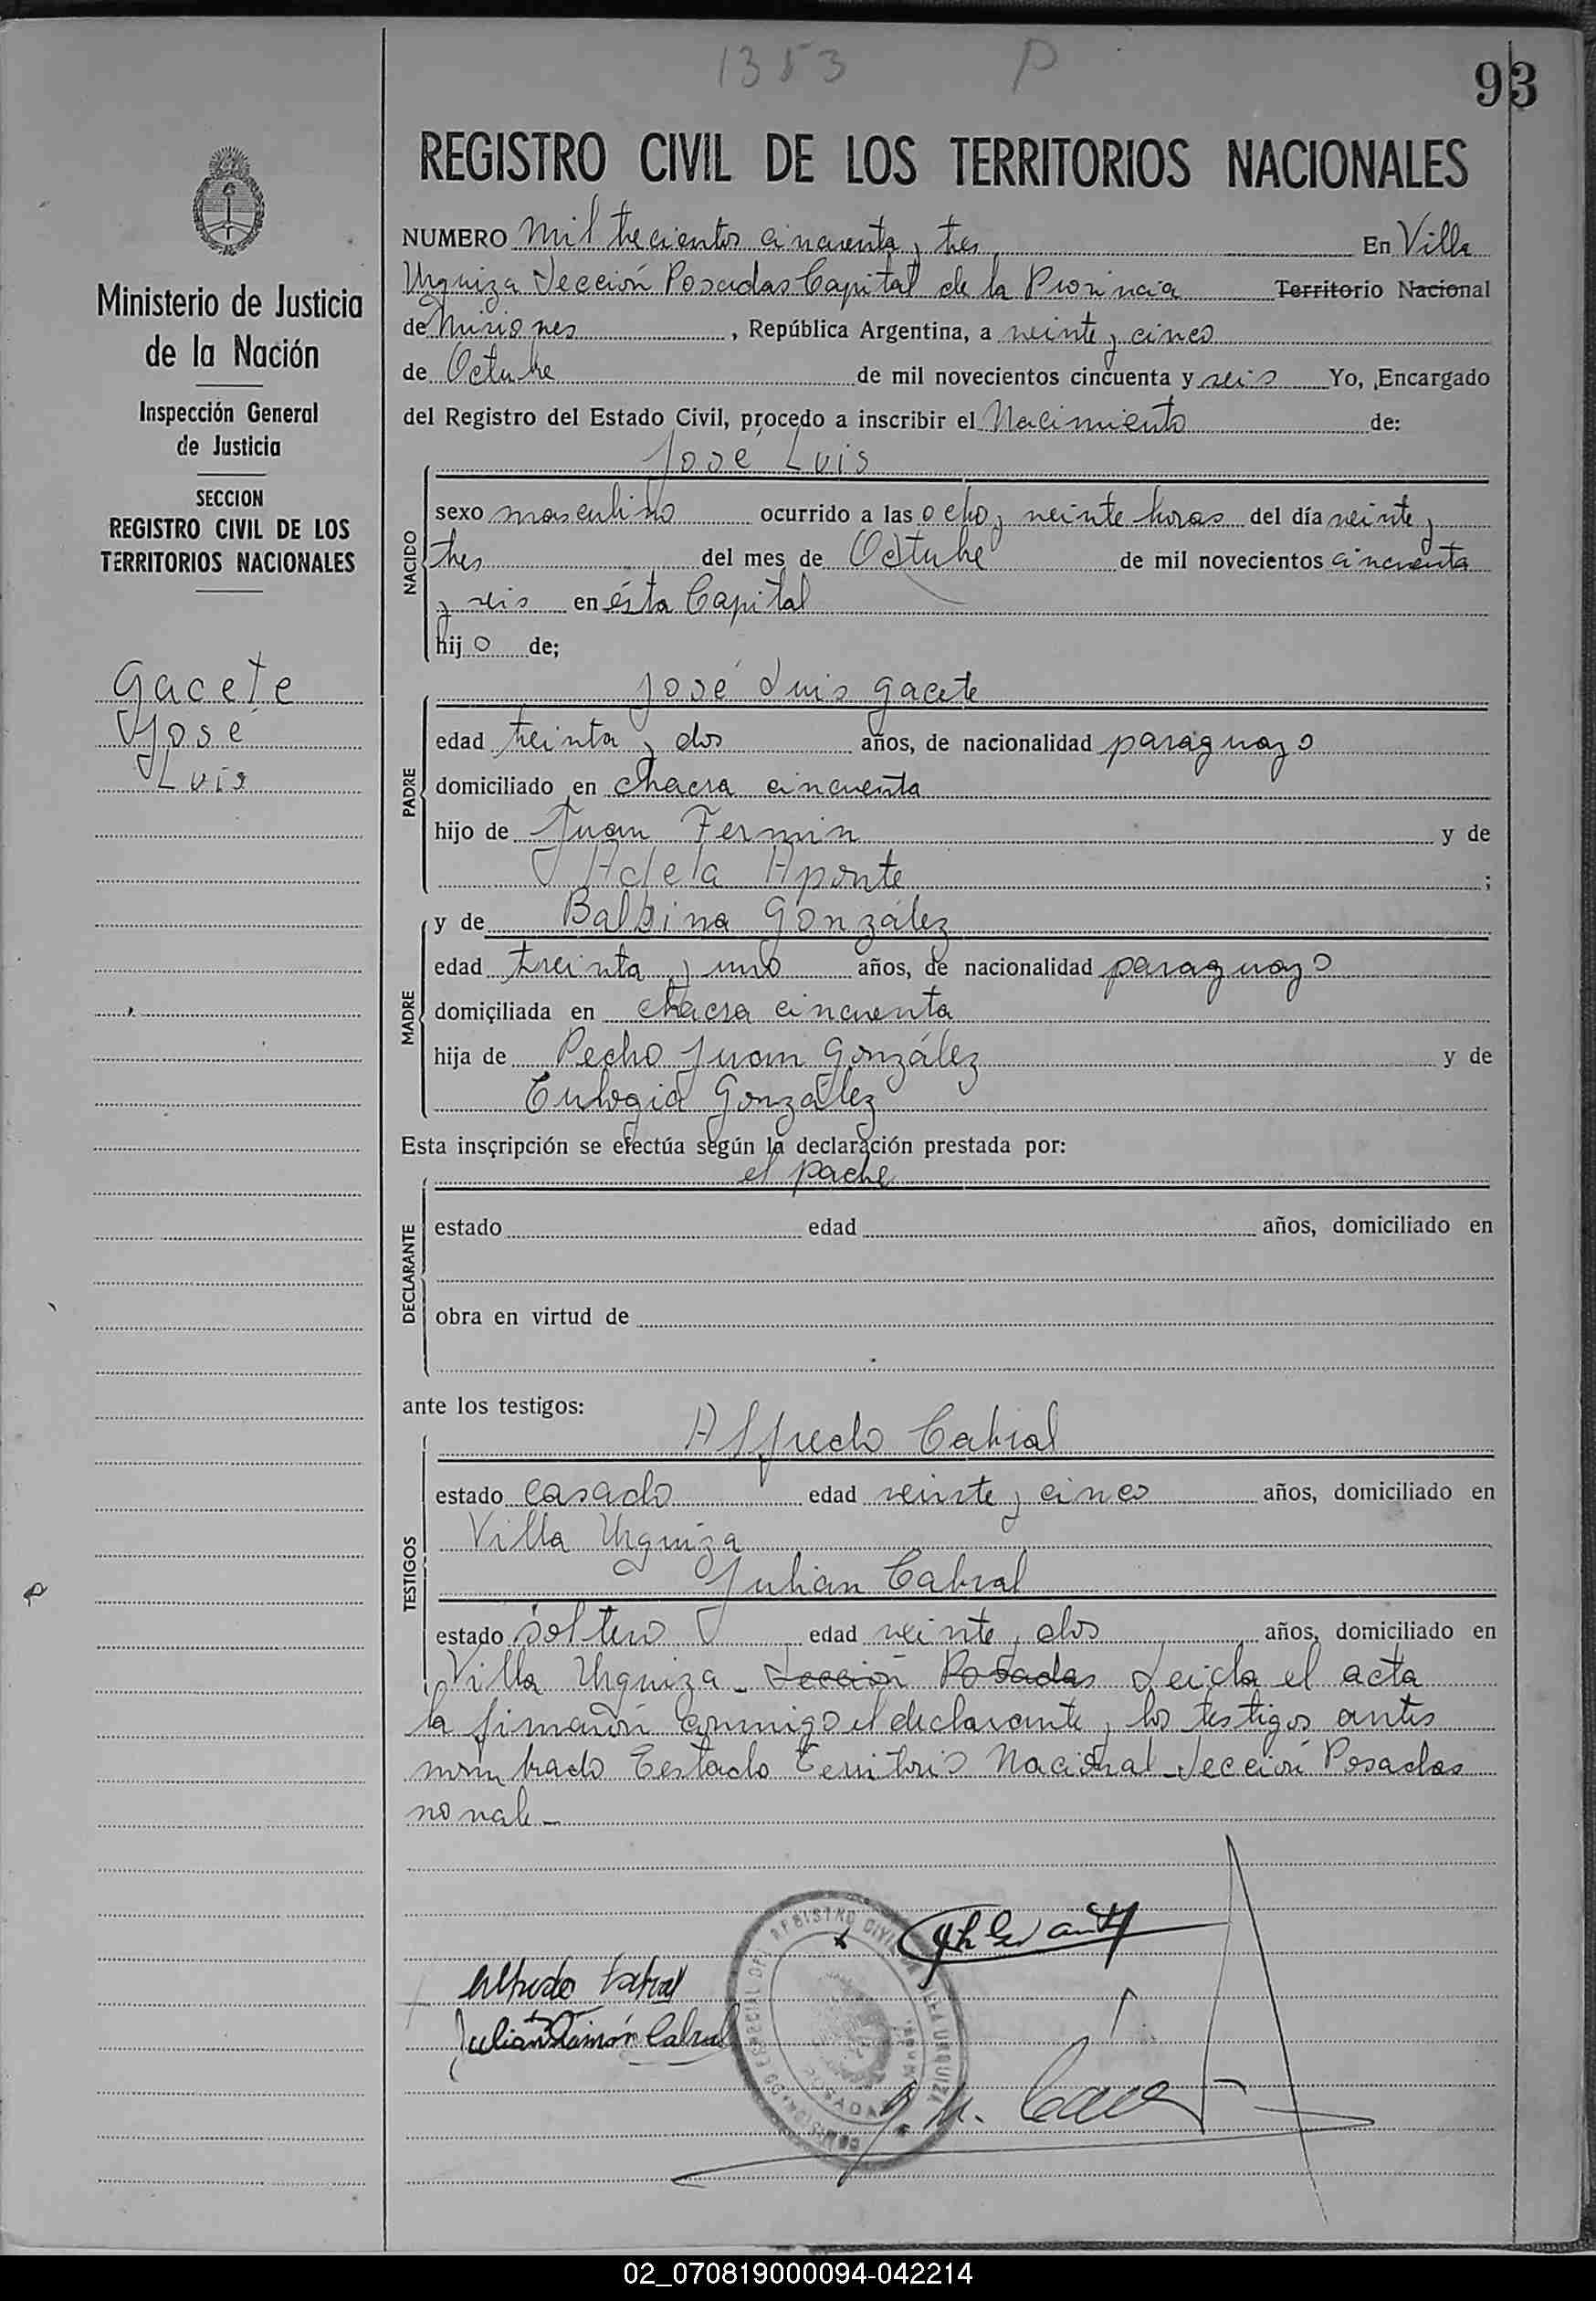 1353 P
93
REGISTRO CIVIL DE LOS TERRITORIOS NACIONALES
Ministerio de Justicia
de la Nación
Inspección General
de Justicia
SECCION
REGISTRO CIVIL DE LOS
TERRITORIOS NACIONALES
Gacete
José
Luis
NUMERO Mil trecientos cincuenta y tres En Villa
Urquiza Sección Posadas Capital de la Provincia Territorio Nacional
de Misiones, República Argentina, a veinte y cinco
de Octubre de mil novecientos cincuenta y seis Yo, Encargado
del Registro del Estado Civil, procedo a inscribir el Nacimiento de:
José Luis
NACIDO
sexo masculino ocurrido a las ocho y veinte horas del día veinte y
tres del mes de Octubre de mil novecientos cincuenta
y seis en ésta Capital
hijo de;
José Luis Gacete
PADRE
edad treinta y dos años, de nacionalidad paraguayo
domiciliado en chacra cincuenta
hijo de Juan Fermin y de
Adela Aponte ;
y de Balbina González
MADRE
edad treinta y uno años, de nacionalidad paraguayo
domiciliada en chacra cincuenta
hija de Pedro Juan González y de
Eulogia González
Esta inscripción se efectúa según la declaración prestada por:
el padre
DECLARANTE
estado edad años, domiciliado en
obra en virtud de
ante los testigos:
Alfredo Cabral
TESTIGOS
estado casado edad veinte y cinco años, domiciliado en
Villa Urquiza
Julian Cabral
estado soltero edad veinte y dos años, domiciliado en
Villa Urquiza - Sección Posadas Leida el acta
la firmaron conmigo el declarante y los testigos antes
nombrado Testado Territorio Nacional - Sección Posadas
no vale -
Alfredo Cabral
Julian Ramón Cabral
REGISTRO CIVIL VILLA URQUIZA
POSADAS
02_070819000094-042214